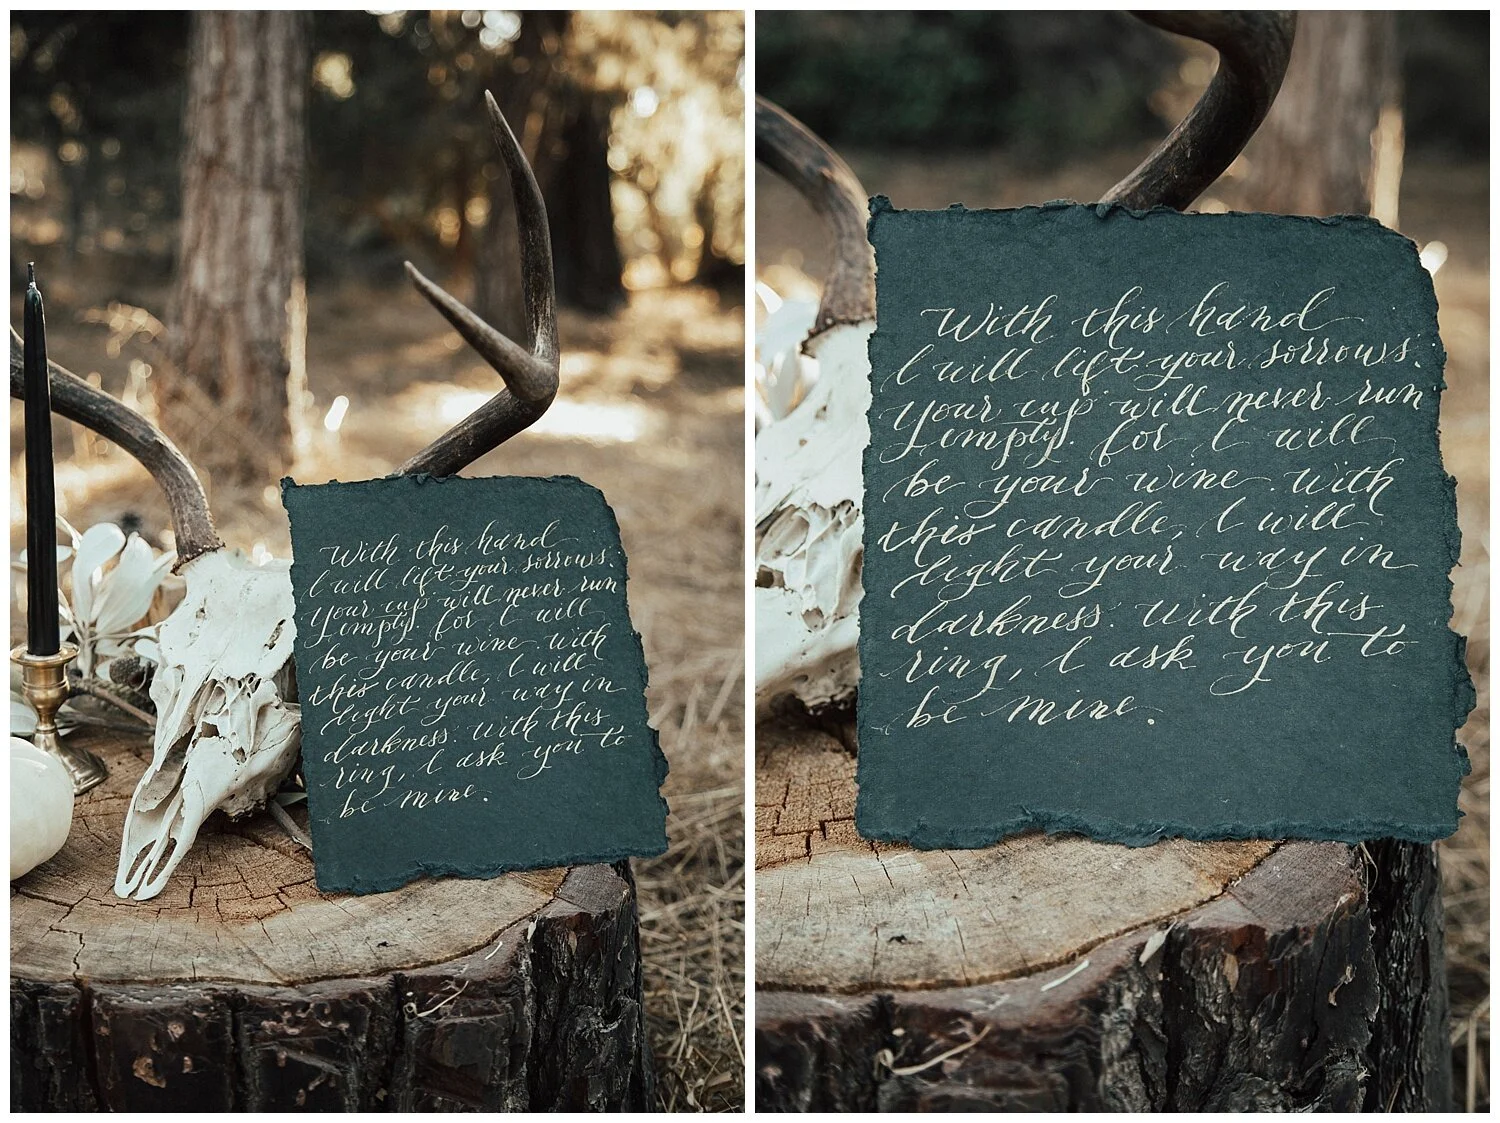 With this hand
I will lift your sorrows.
Your cup will never run
empty. for I will
be your wine. With
this candle, I will
light your way in
darkness. With this
ring, I ask you to
be mine.
With this hand
I will lift your sorrows.
Your cup will never run
empty. for I will
be your wine. With
this candle, I will
light your way in
darkness. With this
ring, I ask you to
be mine.